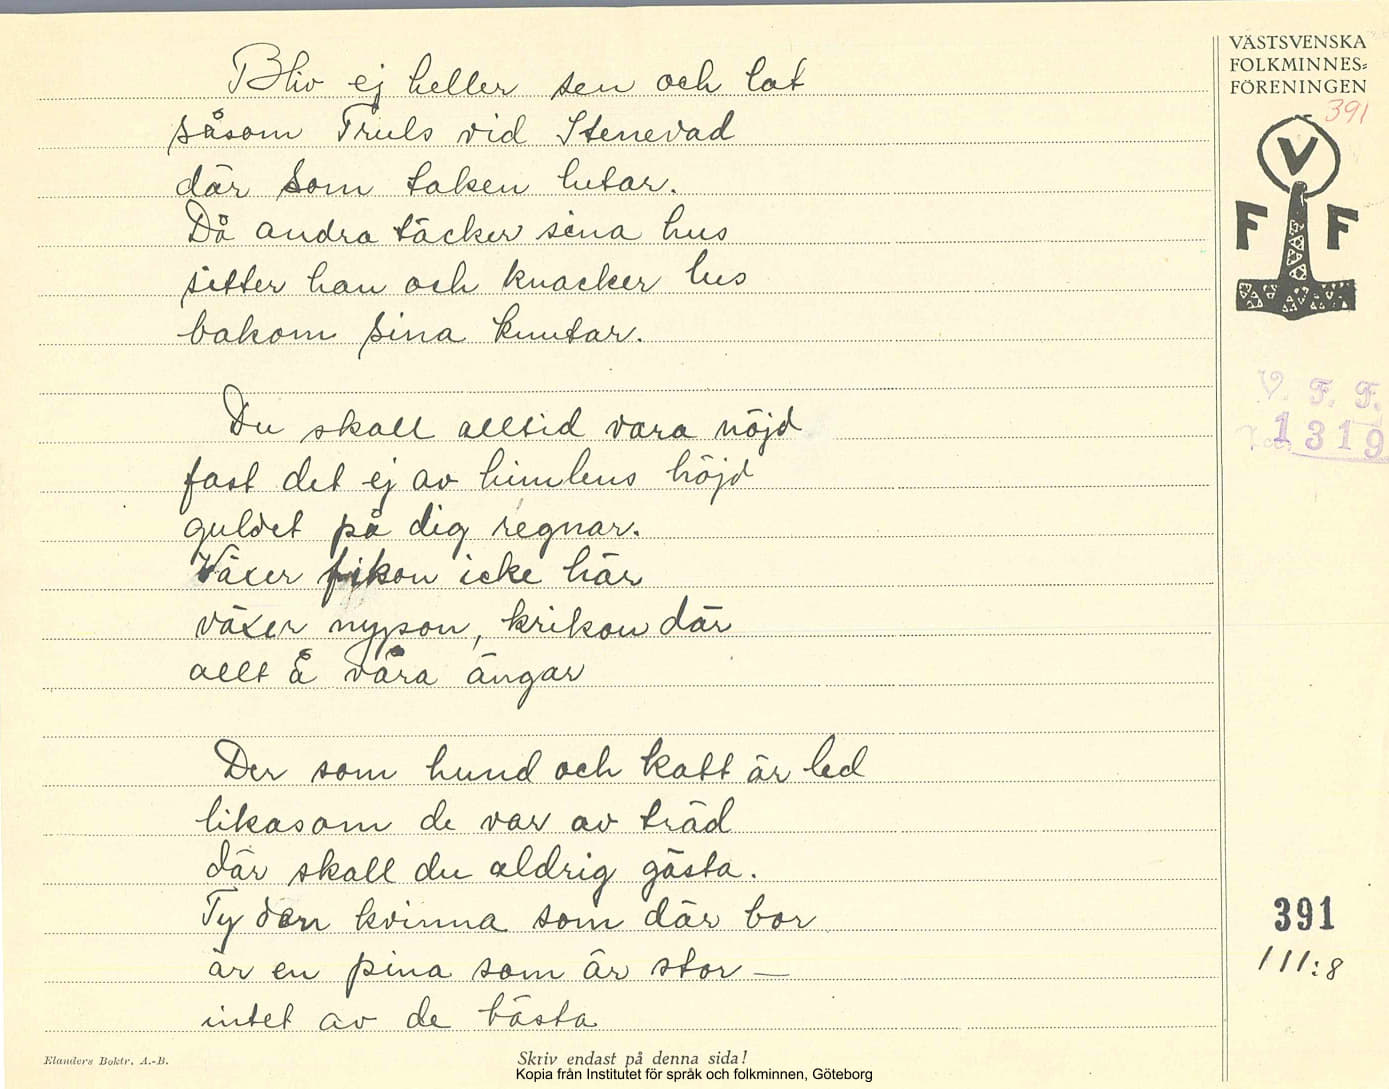 VÄSTSVENSKA
FOLKMINNES-
FÖRENINGEN
391
V
F F
V. F. F.
1319
Bliv ej heller sen och lat
såsom Truls vid Stenevad
där som taken lutar.
Då andra täcker sina hus
sitter han och knacker lus
bakom sina knutar.
Du skall alltid vara nöjd
fast det ej av himlens höjd
guldet på dig regnar.
Växer fikon icke här
växer nypon, krikon där
allt å våra ängar
Der som hund och katt är led
likasom de var av träd
där skall du aldrig gästa.
Ty den kvinna som där bor
är en pina som är stor —
intet av de bästa
391
111:8
Elanders Boktr. A.-B.
Skriv endast på denna sida!
Kopia från Institutet för språk och folkminnen, Göteborg